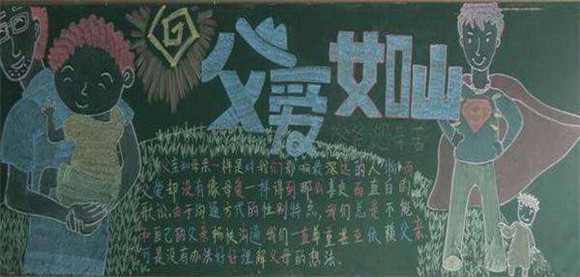 父爱如山
爸爸您辛苦
父亲和母亲一样是对我们影响最深远的人物而
父爱却没有像母爱一样得到那么喜良而直白的
歌讼由于沟通方式的性别特点,我们总是不能
和自己的父亲畅快沟通我们一直尊重甚至依赖父亲
可是没有办法好好理解父母的想法。